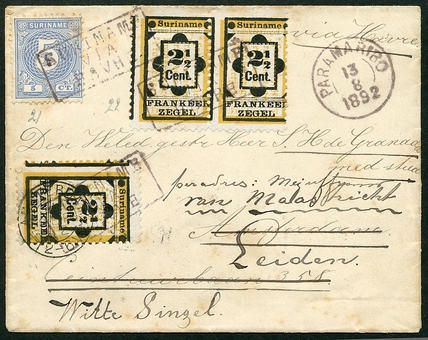 SURINAME
5
5 CT.
SURINAME
VIA
HAVR
Suriname
2½
Cent.
FRANKEER
ZEGEL
Suriname
2½
Cent.
FRANKEER
ZEGEL
via Havre
PARAMARIBO
13
8
1892
21
22
Den Weled. gestr. Heer
Suriname
2½
Cent.
FRANKEER
ZEGEL
per adres:
van Maastricht
Amsterdam
Leiden
358
Witte Singel.